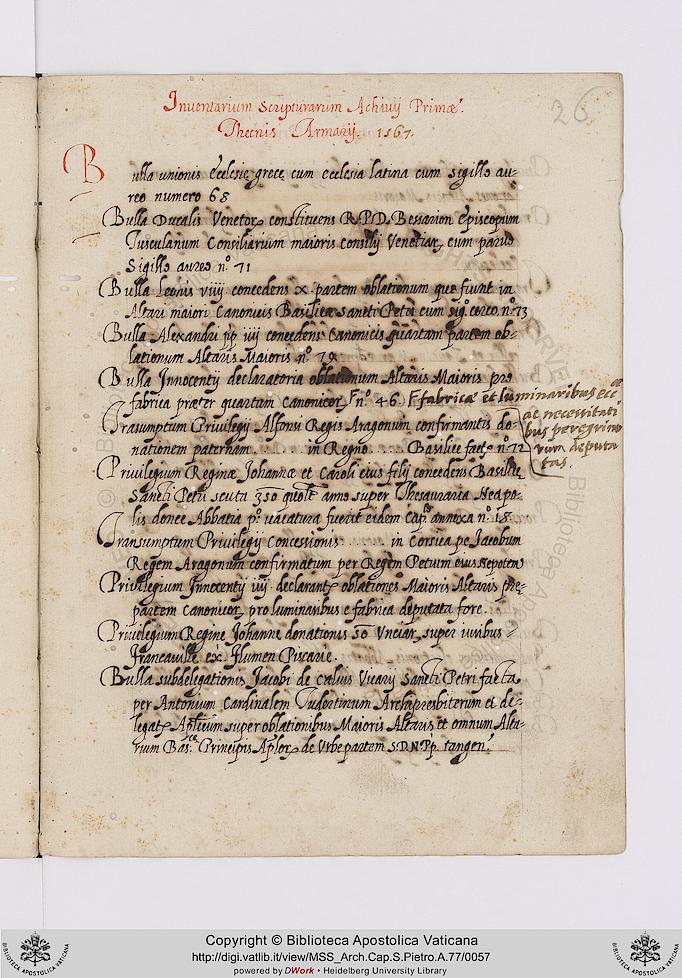 26
Inventarium Scripturarum Achiuij Primæ
Thecnis Armarij. 1567.
Bulla unionis Ecclesię gręce cum ecclesia latina cum sigillo au-
reo numero 68
Bulla Ducalis Venetor constituens R.P.D. Bessarion Episcopum
Tusculanum Consiliarium maioris consilij Venetiar, cum paruo
Sigillo aureo nº 71
Bulla Leonis viiij concedens x partem oblationum que fiunt in
Altari maiori Canonicis Basilicæ sancti Petri cum sigº cereo nº 73
Bulla Alexandri pp iiij concedens Canonicis quartam partem ob-
lationum Altaris Maioris nº 79
Bulla Innocentij declaratoria oblationum Altaris Maioris pro
fabrica præter quartam Canonicor, nº 46. fabricæ et luminaribus ecc
ac necessitati
bus peregrino
rum deputa
tas.
Trasumptum Privilegij Alfonsi Regis Aragonum confirmantis do-
nationem paternam ..... in Regno ..... Basilice fact nº 12
Privilegium Reginæ Johannæ et Caroli eius filij concedens Basilic
Sancti Petri scuta 350 quolt anno super Thesauraria Neapo-
lis donec Abbatia pº uacatura fuerit eidem Cap annexa nº 18
Transumptum Privilegij Concessionis ...... in Corsica pe Jacobum
Regem Aragonum confirmatum per Regem Petrum eius Nepotem
Privilegium Innocentij iiij declarant oblationes Maioris Altaris pre
partem Canonicor, pro luminaribus e fabrica deputata fore.
Privilegium Regine Johanne donationis 50 Vnciar, super iuribus
Francauillę ex Flumen Piscarie.
Bulla subdelegationis Jacobi de caluis Vicarij Sancti Petri facta
per Antonium Cardinalem Tudertinum Archipresbiterum et de-
legat Aplicum super oblationibus Maioris Altaris et omnium Alta-
rium Bas Principis Aplor, de Vrbe partem S.D.N.Pp. tangen.
Copyright © Biblioteca Apostolica Vaticana
http://digi.vatlib.it/view/MSS_Arch.Cap.S.Pietro.A.77/0057
powered by DWork • Heidelberg University Library
BIBLIOTECA APOSTOLICA VATICANA
BIBLIOTECA APOSTOLICA VATICANA